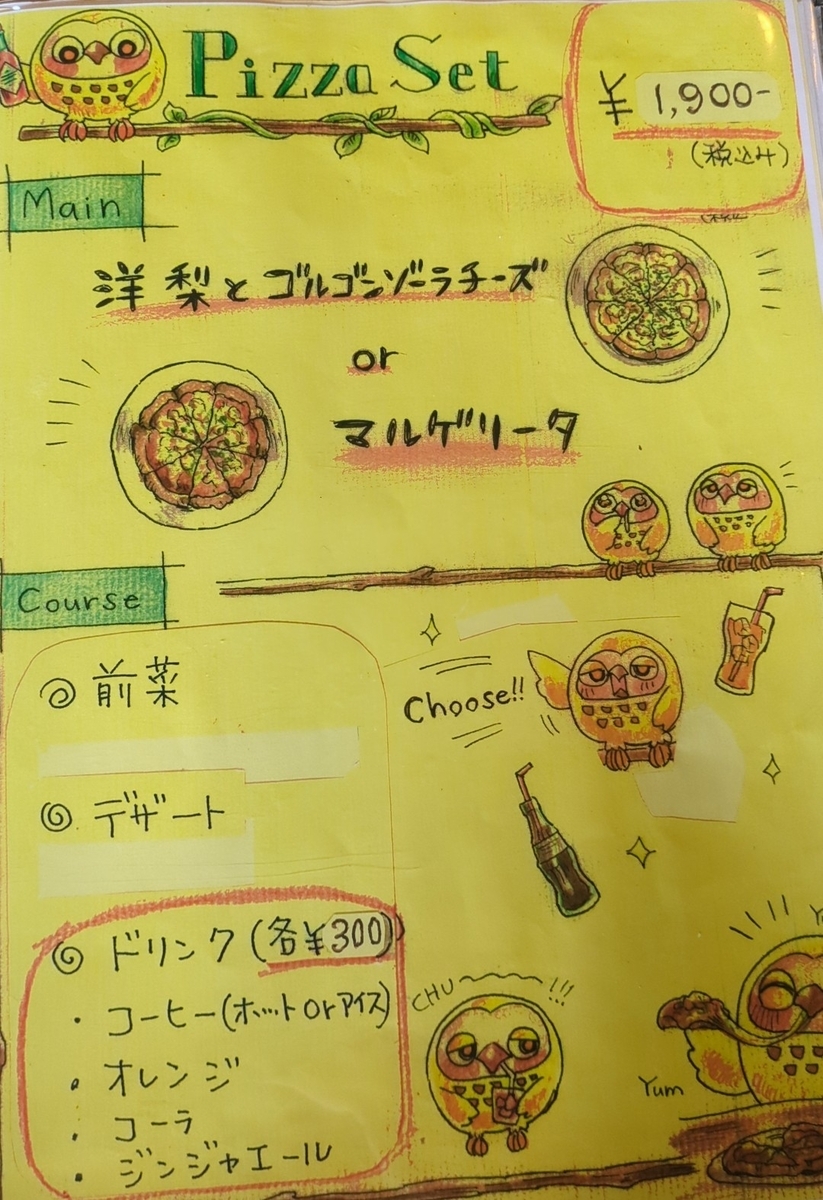 Pizza Set
¥ 1,900-
(税込み)
Main
洋梨とゴルゴンゾーラチーズ
or
マルゲリータ
Course
前菜
Choose!!
デザート
ドリンク(各¥300)
・コーヒー(ホットorアイス)
・オレンジ
・コーラ
・ジンジャエール
CHU〜!!!
Yum